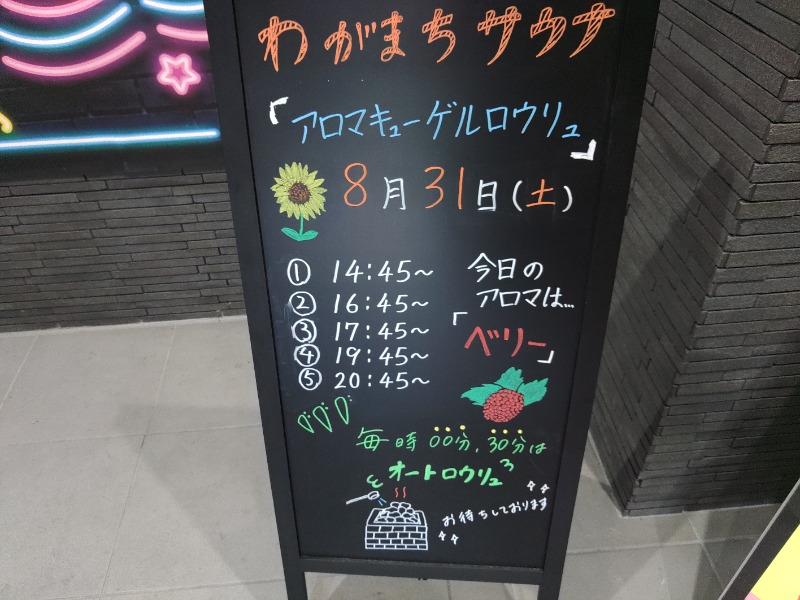 わがまちサウナ
「アロマキューゲルロウリュ」
8月31日(土)
① 14:45~
② 16:45~
③ 17:45~
④ 19:45~
⑤ 20:45~
今日の
アロマは...
「ベリー」
毎時00分、30分は
オートロウリュ
お待ちしております